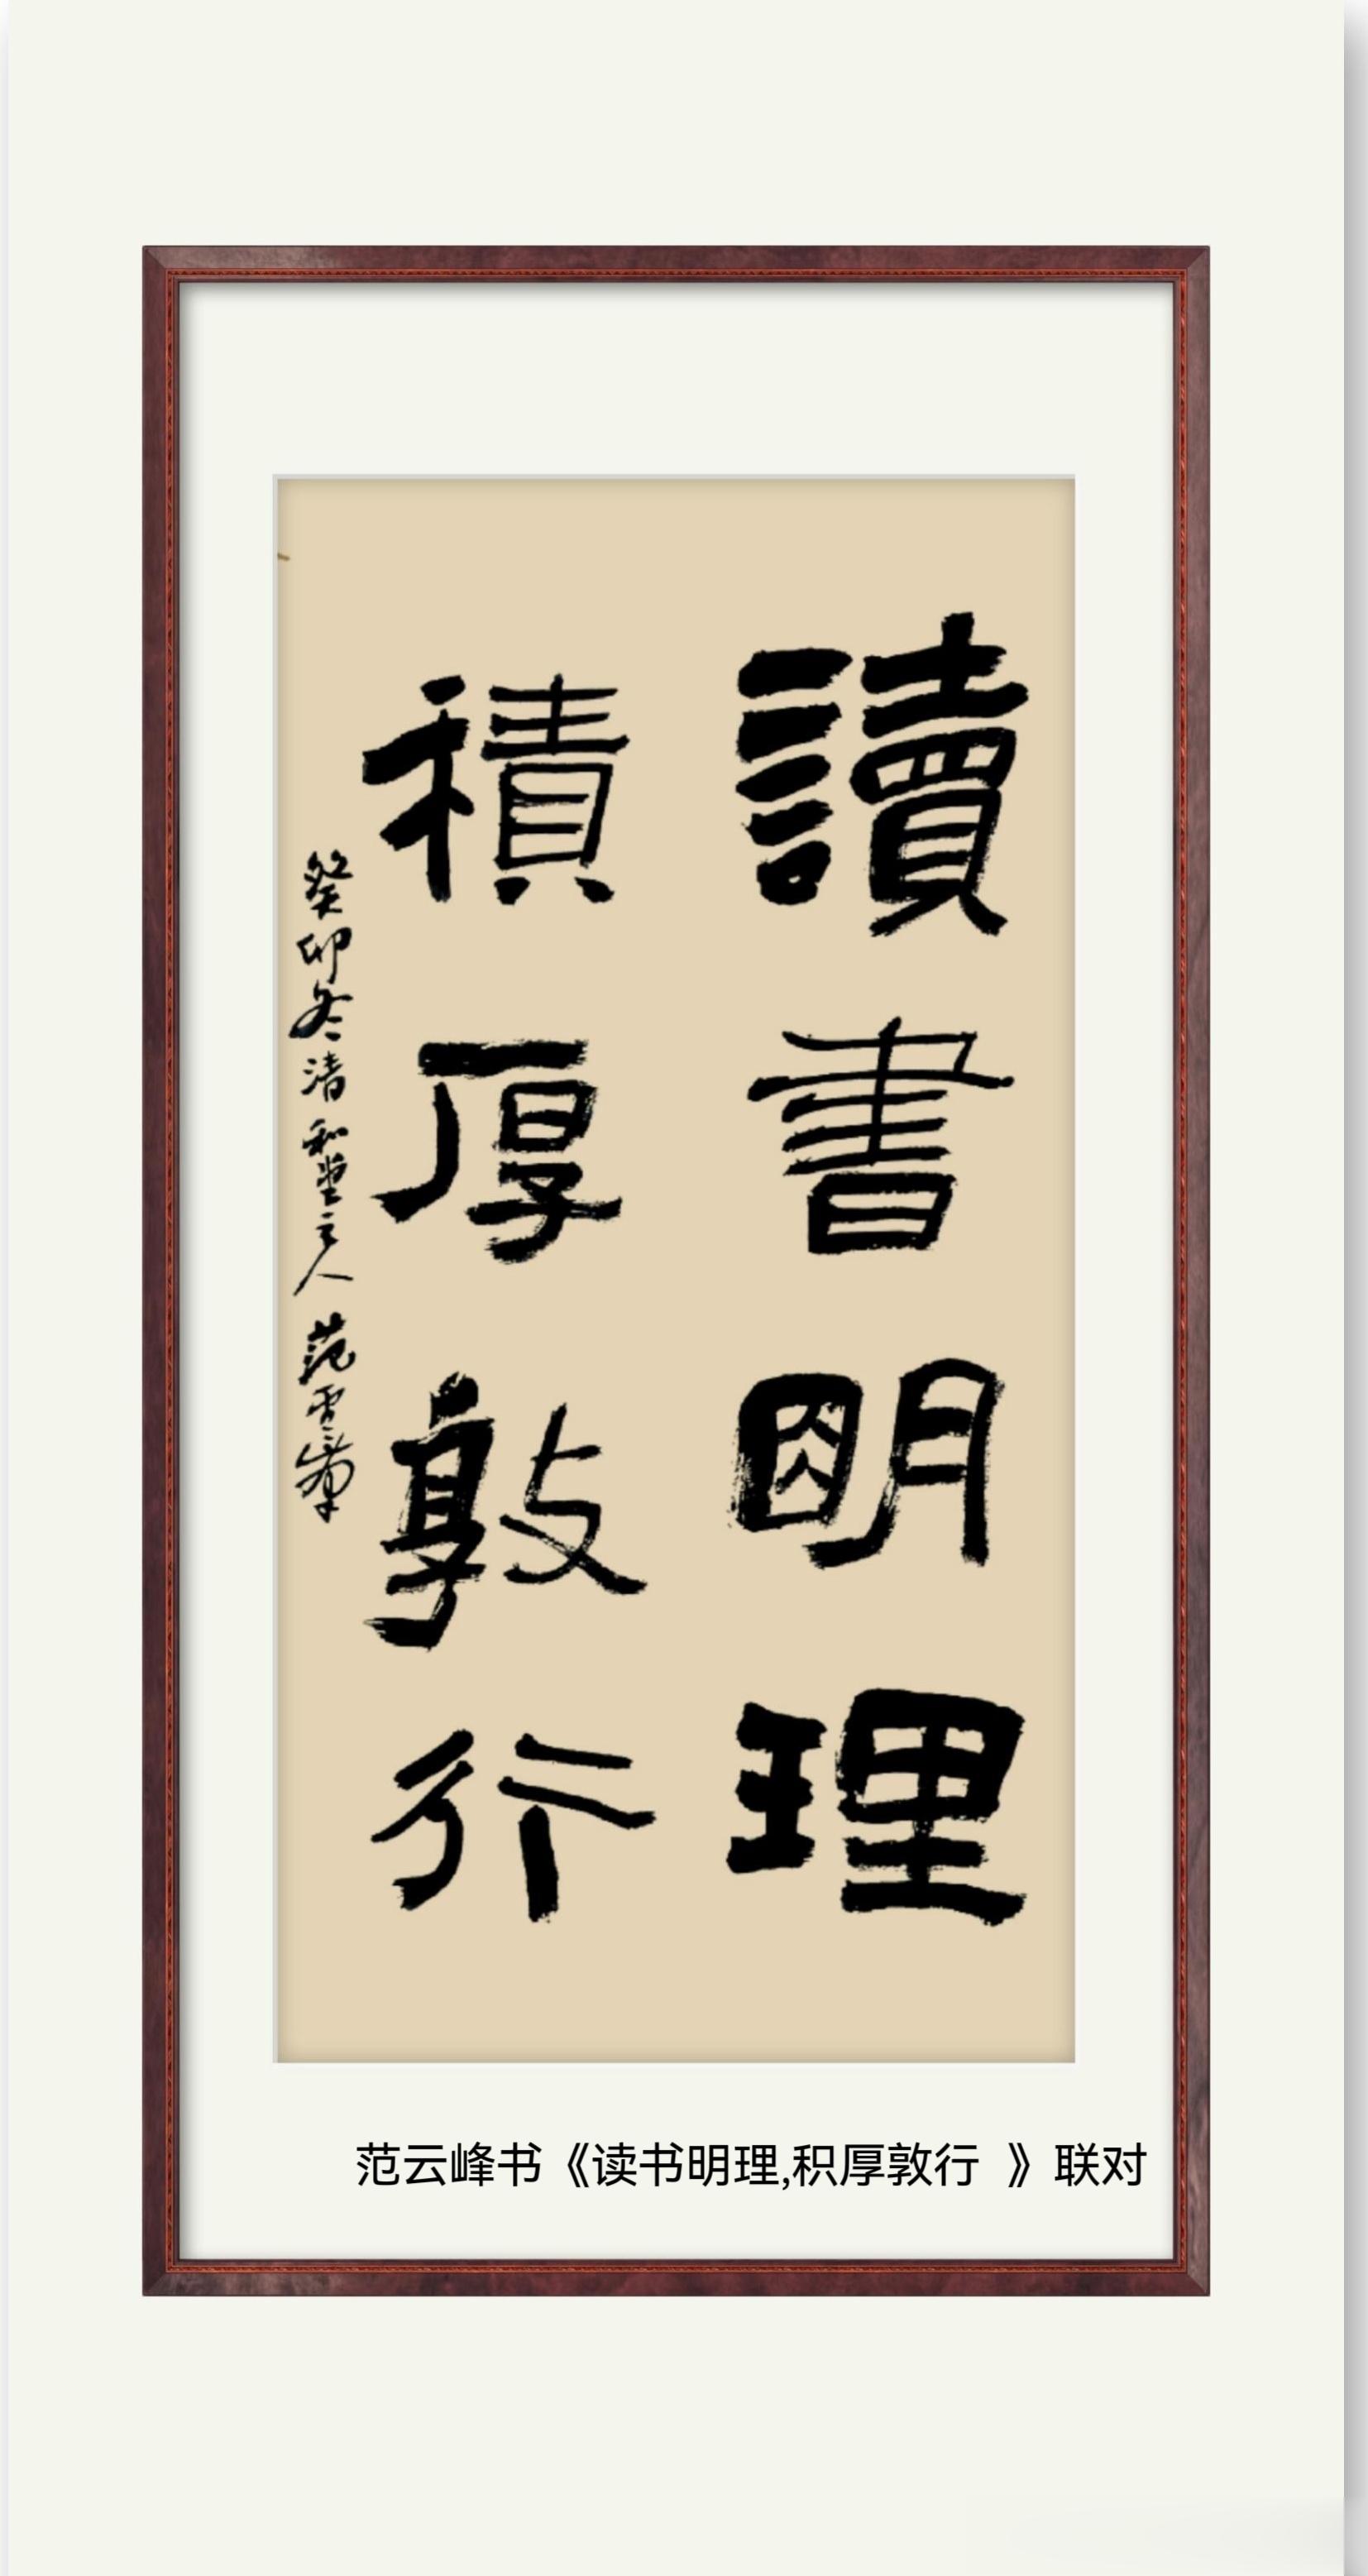 讀書明理
積厚敦行
癸卯冬清和堂主人范雲峯
范云峰书《读书明理,积厚敦行 》联对